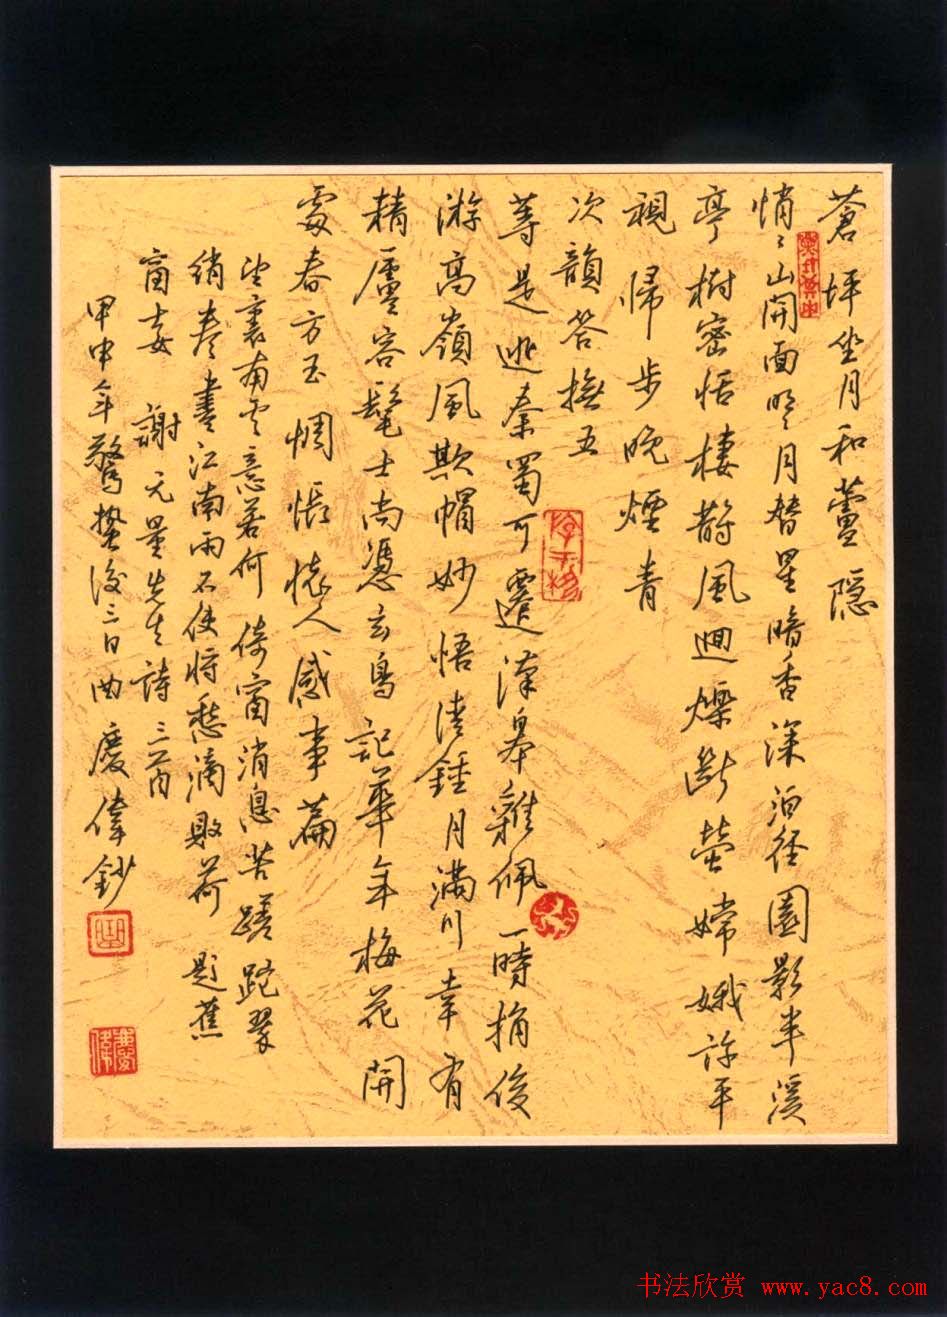 蒼坪坐月和蘆隱
悄悄山開面明明月替星暗香深泊径園影半溪
亭樹密恬棲鵲風迴爍斷螢嫦娥許平
視歸步晚煙青
次韻答撫五
等是逃秦蜀可遷漢皋雜佩一時捐俊
游高嶺風欺帽妙悟清鍾月滿川幸有
精廬容髦士尚憑玄鳥記華年梅花開
處春方至惆悵懷人感事篇
望裏南雲意若何倚窗消息苦蹉跎翠
綃卷盡江南雨不使將愁滴敗荷 題蕉
窗 謝元量先生詩三首
甲申年驚蟄後三日曲慶偉鈔
书法欣赏 www.yac8.com